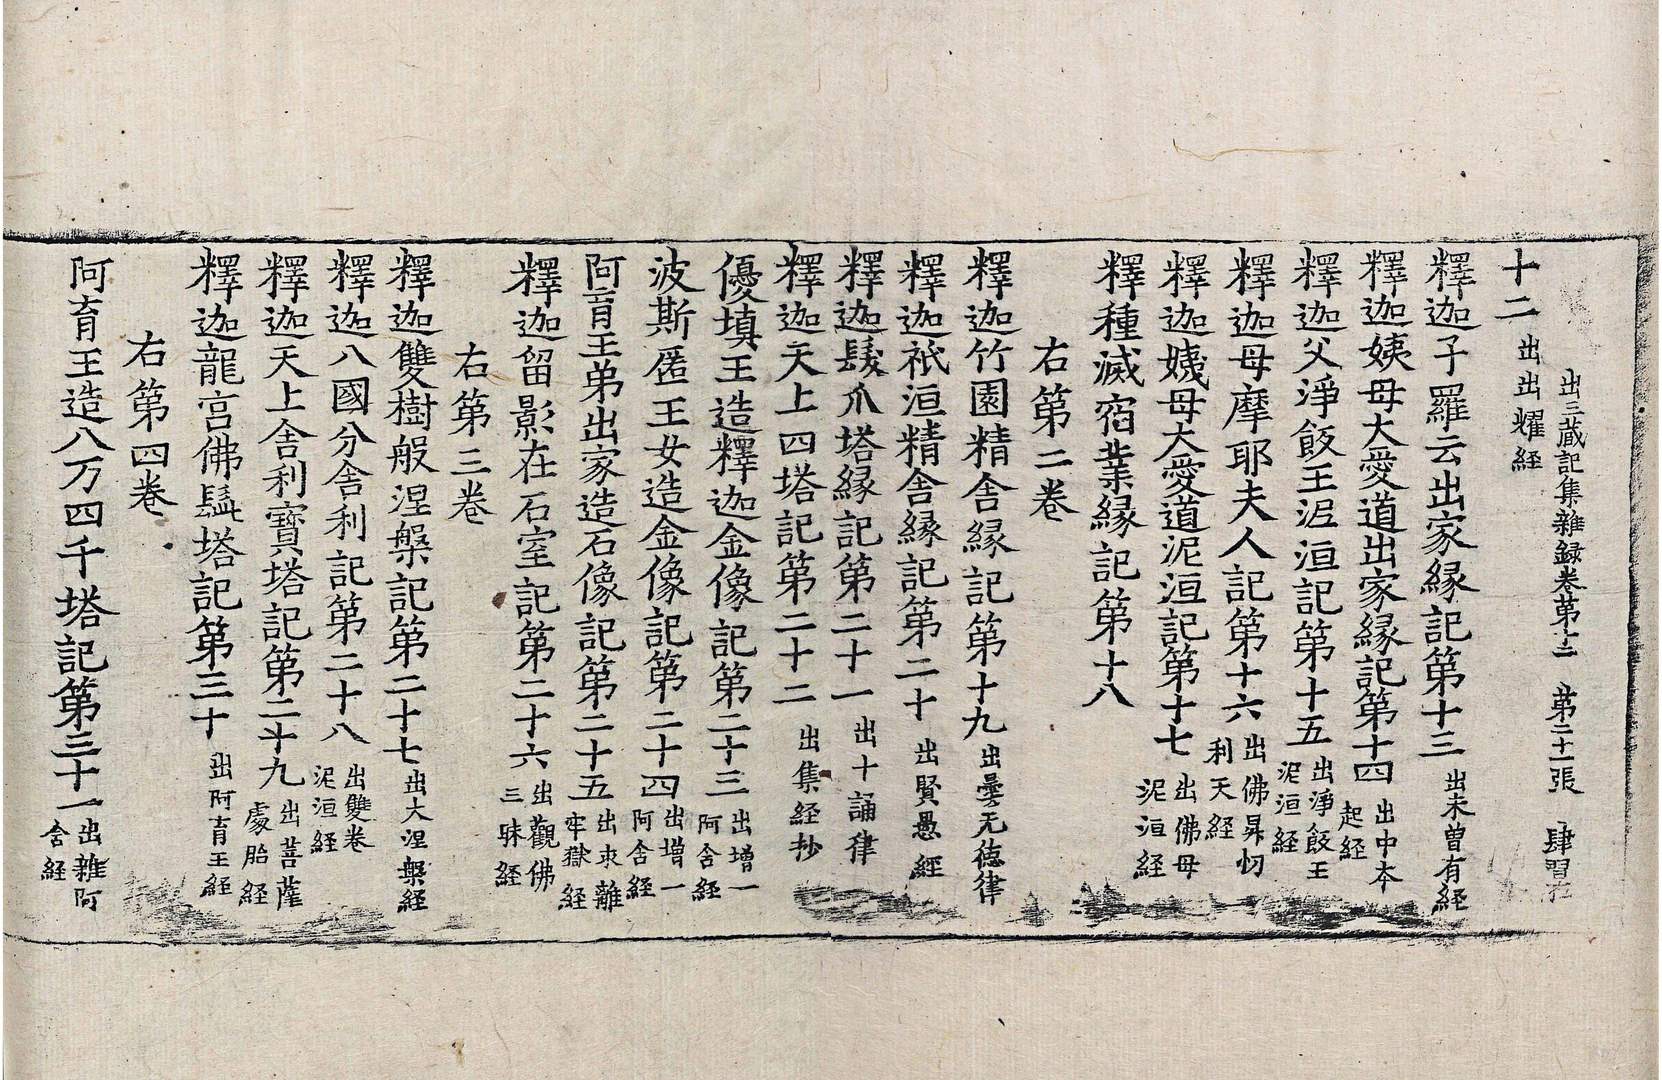 出三蔵記集雜録巻第十二 第二十一張 肆習
十二出出耀経
釋迦子羅云出家縁記第十三出未曽有経
釋迦姨母大愛道出家縁記第十四出中本起経
釋迦父淨飯王泥洹記第十五出淨飯王泥洹経
釋迦母摩耶夫人記第十六出佛昇忉利天経
釋迦姨母大愛道泥洹記第十七出佛母泥洹経
釋種滅宿業縁記第十八
右第二巻
釋迦竹園精舎縁記第十九出曇无德律
釋迦祇洹精舎縁記第二十出賢愚経
釋迦髮爪塔縁記第二十一出十誦律
釋迦天上四塔記第二十二出集経抄
優填王造釋迦金像記第二十三出増一阿舎経
波斯匿王女造金像記第二十四出増一阿舎経
阿育王弟出家造石像記第二十五出求離牢獄経
釋迦留影在石室記第二十六出觀佛三昧経
右第三巻
釋迦雙樹般涅槃記第二十七出大涅槃経
釋迦八國分舎利記第二十八出雙巻泥洹経
釋迦天上舎利寳塔記第二十九出菩薩處胎経
釋迦龍宫佛髭塔記第三十出阿育王経
右第四巻
阿育王造八万四千塔記第三十一出雜阿舎経